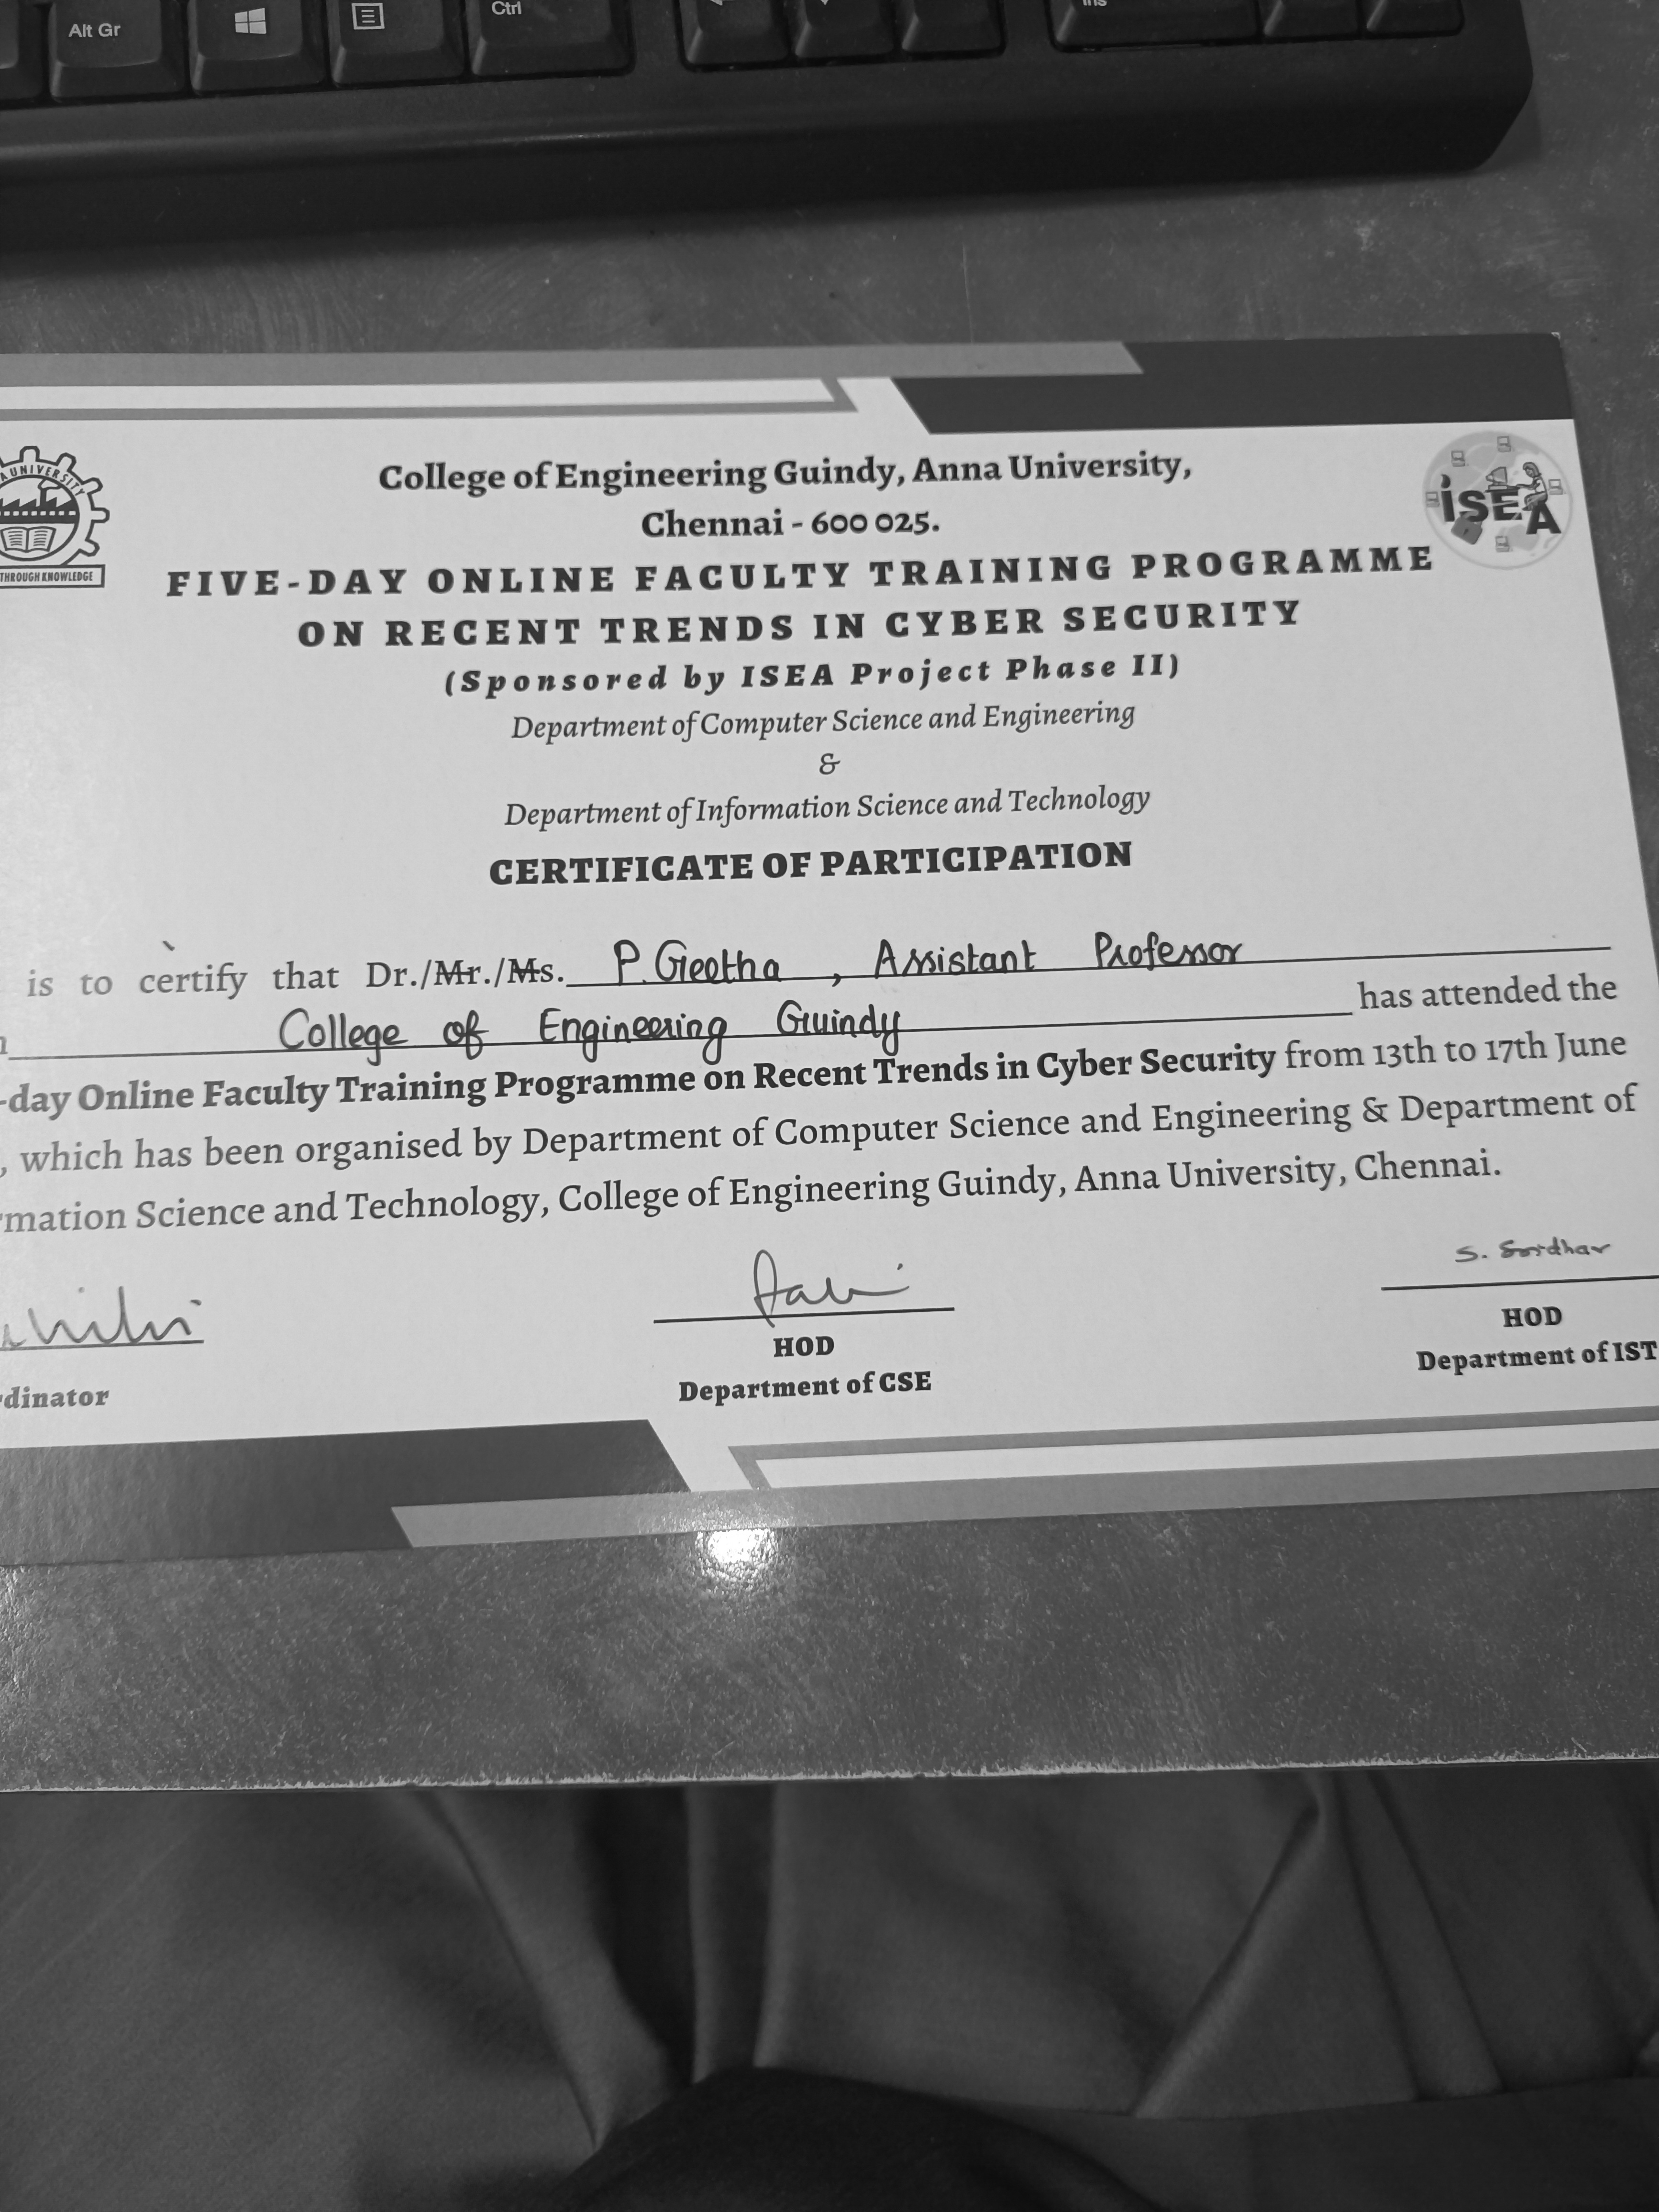 Alt Gr
Ctrl
Ins
UNIVERSITY
THROUGH KNOWLEDGE
ISEA
College of Engineering Guindy, Anna University,
Chennai - 600 025.
FIVE-DAY ONLINE FACULTY TRAINING PROGRAMME
ON RECENT TRENDS IN CYBER SECURITY
(Sponsored by ISEA Project Phase II)
Department of Computer Science and Engineering
&
Department of Information Science and Technology
CERTIFICATE OF PARTICIPATION
is to certify that Dr./Mr./Ms. P. Geetha , Assistant Professor
College of Engineering Guindy has attended the
-day Online Faculty Training Programme on Recent Trends in Cyber Security from 13th to 17th June
, which has been organised by Department of Computer Science and Engineering & Department of
rmation Science and Technology, College of Engineering Guindy, Anna University, Chennai.
S. Sridhar
HOD
HOD
Department of CSE
Department of IST
dinator